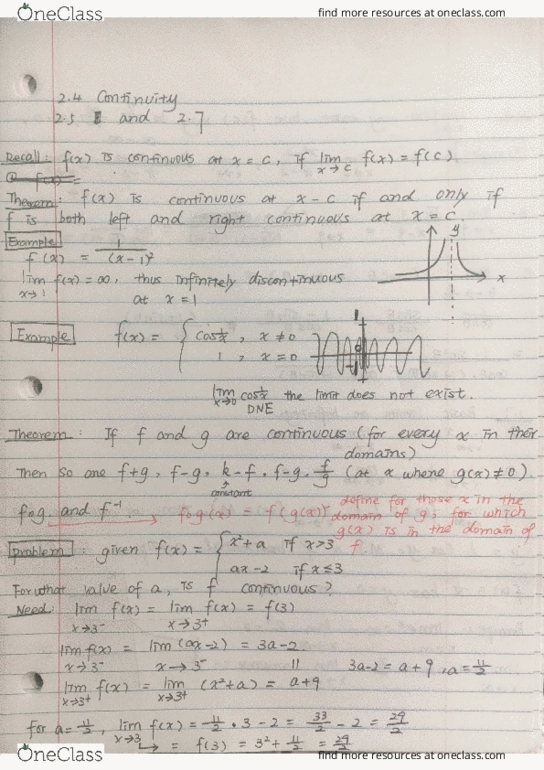 OneClass find more resources at oneclass.com
2.4 Continuity
2.5 and 2.7
Recall: f(x) is continuous at x = c, if lim x→c f(x) = f(c)
Theorem: f(x) is continuous at x - c if and only if
f is both left and right continuous at x = c.
Example
f(x) = 1/(x-1)²
lim x→1 f(x) = ∞, thus infinitely discontinuous
at x = 1
y
x
Example f(x) = { cos 1/x, x ≠ 0
1, x = 0
lim x→0 cos 1/x the limit does not exist.
DNE
Theorem: If f and g are continuous (for every x in their
domains)
Then so are f+g, f-g, k-f, f-g, f/g (at x where g(x) ≠ 0)
constant
fog, and f⁻¹ → fog(x) = f(g(x)) define for those x in the
domain of g, for which
g(x) is in the domain of
f
problem: given f(x) = { x²+a if x>3
ax-2 if x≤3
For what value of a, is f continuous?
Need: lim x→3⁻ f(x) = lim x→3⁺ f(x) = f(3)
lim x→3⁻ f(x) = lim x→3⁻ (ax-2) = 3a-2
11 3a-2 = a+9, a = 11/2
lim x→3⁺ f(x) = lim x→3⁺ (x²+a) = a+9
for a = 11/2, lim x→3 f(x) = 11/2 · 3 - 2 = 33/2 - 2 = 29/2
→ = f(3) = 3² + 11/2 = 29/2
OneClass find more resources at oneclass.com